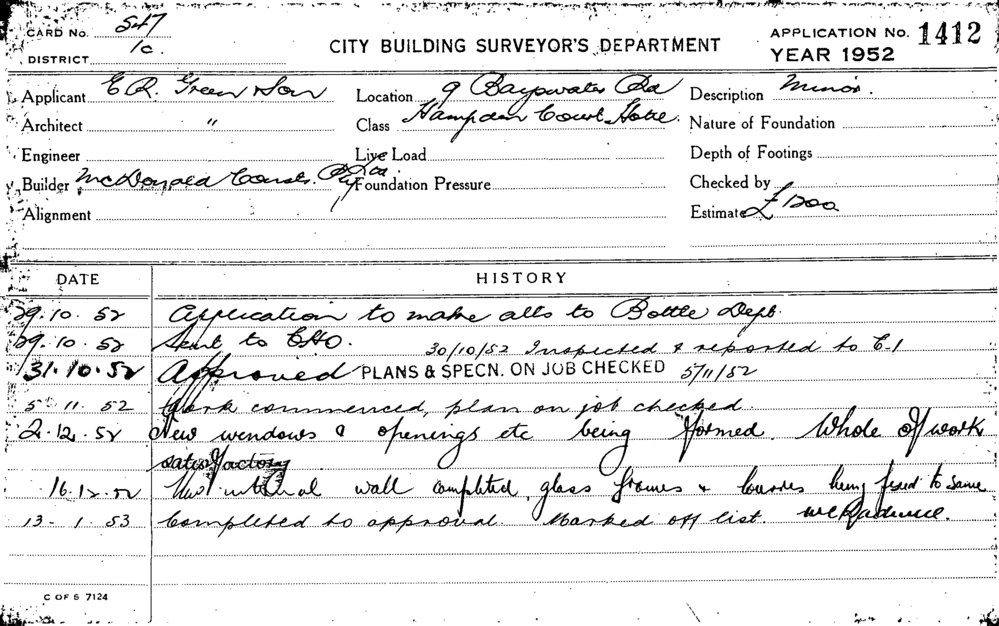 CARD No. 547
DISTRICT 1c.
CITY BUILDING SURVEYOR'S DEPARTMENT
APPLICATION No. 1412
YEAR 1952
Applicant E R. Green Son
Location 9 Bayswater Rd
Description Minor.
Architect "
Class Hampden Court Hotel.
Nature of Foundation
Engineer
Live Load
Depth of Footings
Builder McDonald Consts. Pty
Foundation Pressure
Checked by
Alignment
Estimate £1200
DATE HISTORY
29.10.52 Application to make alts to Bottle Dept.
29.10.52 Sent to CHO. 30/10/52 Inspected & reported to C.1
31.10.52 Approved PLANS & SPECN. ON JOB CHECKED 5/11/52
5.11.52 Work commenced, plan on job checked.
2.12.52 New windows & openings etc being formed. Whole of work
satisfactory
16.12.52 New internal wall completed, glass frames & louvres being fixed to same
13.1.53 Completed to approval. Marked off list.
C OF S 7124